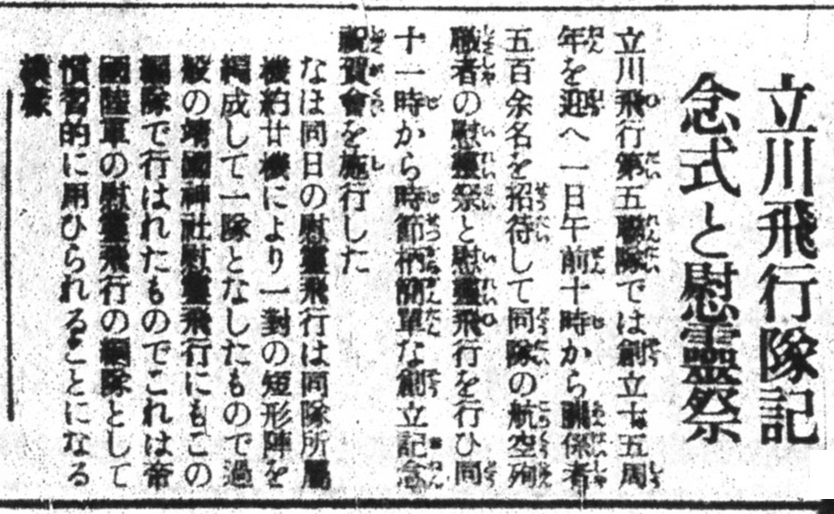 立川飛行隊記
念式と慰靈祭
立川飛行第五聯隊では創立十五周
年を迎へ一日午前十時から關係者
五百余名を招待して同隊の航空殉
職者の慰靈祭と慰靈飛行を行ひ同
十一時から時節柄簡單な創立記念
祝賀會を施行した
なほ同日の慰靈飛行は同隊所屬
機約廿機により一對の短形陣を
編成して一隊となしたもので過
般の靖國神社慰靈飛行にもこの
編隊で行はれたものでこれは帝
國陸軍の慰靈飛行の編隊として
慣習的に用ひられることになる
模樣